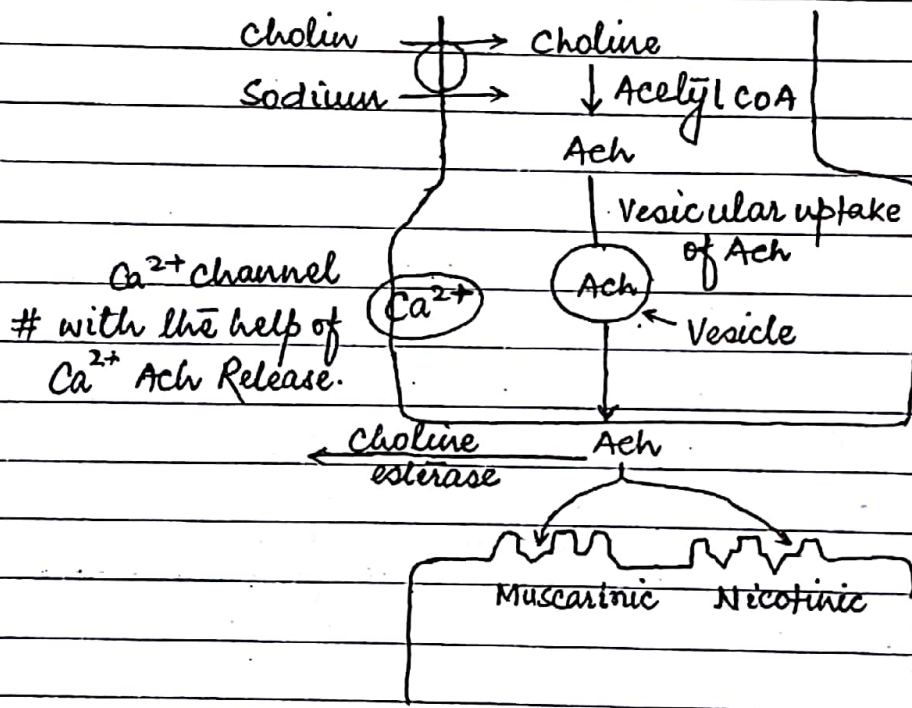 Cholin → Choline
Sodium → ↓ Acetyl CoA
Ach
Vesicular uptake
of Ach
Ca²⁺ channel
# with the help of
Ca²⁺ Ach Release.
Ca²⁺
Ach
Vesicle
Choline
esterase
Ach
Muscarinic Nicotinic